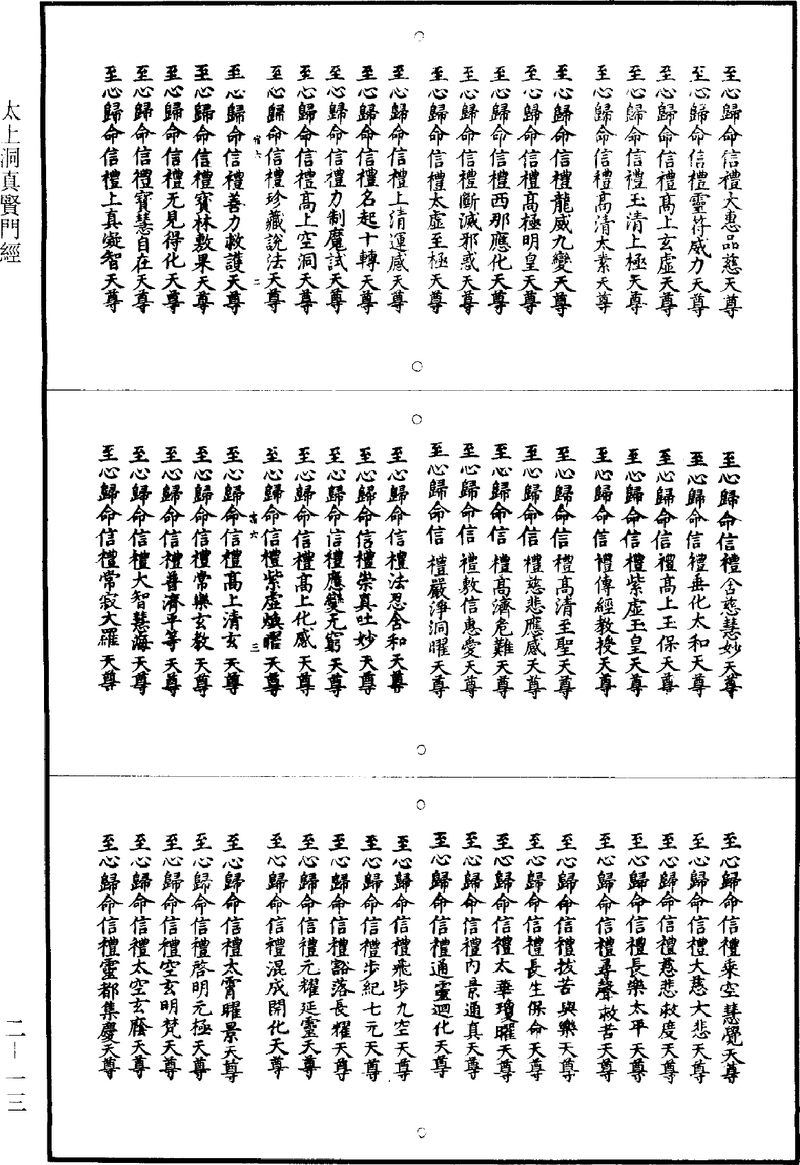 太上洞真賢門經
至心歸命信禮大惠品慈天尊
至心歸命信禮靈符威力天尊
至心歸命信禮高上玄虛天尊
至心歸命信禮玉清上極天尊
至心歸命信禮高清太素天尊
至心歸命信禮龍威九變天尊
至心歸命信禮高極明皇天尊
至心歸命信禮西那應化天尊
至心歸命信禮斷滅邪惑天尊
至心歸命信禮太虛至極天尊
至心歸命信禮上清運感天尊
至心歸命信禮名起十轉天尊
至心歸命信禮力制魔試天尊
至心歸命信禮高上空洞天尊
至心歸命信禮珍藏說法天尊
二
至心歸命信禮善力救護天尊
至心歸命信禮寶林數果天尊
至心歸命信禮无見得化天尊
至心歸命信禮寶慧自在天尊
至心歸命信禮上真凝智天尊
至心歸命信禮含慈慧妙天尊
至心歸命信禮垂化太和天尊
至心歸命信禮高上玉保天尊
至心歸命信禮紫虛玉皇天尊
至心歸命信禮傳經教授天尊
至心歸命信禮高清至聖天尊
至心歸命信禮慈悲應感天尊
至心歸命信禮高濟危難天尊
至心歸命信禮敷信惠愛天尊
至心歸命信禮嚴淨洞曜天尊
至心歸命信禮法忍含和天尊
至心歸命信禮崇真吐妙天尊
至心歸命信禮應變无窮天尊
至心歸命信禮高上化感天尊
至心歸命信禮紫虛煥曜天尊
三
至心歸命信禮高上清玄天尊
至心歸命信禮常樂玄教天尊
至心歸命信禮普濟平等天尊
至心歸命信禮大智慧海天尊
至心歸命信禮常寂大羅天尊
至心歸命信禮乘空慧覺天尊
至心歸命信禮大慈大悲天尊
至心歸命信禮慈悲救度天尊
至心歸命信禮長樂太平天尊
至心歸命信禮尋聲救苦天尊
至心歸命信禮拔苦與樂天尊
至心歸命信禮長生保命天尊
至心歸命信禮太華瓊曜天尊
至心歸命信禮內景通真天尊
至心歸命信禮通靈迴化天尊
至心歸命信禮飛步九空天尊
至心歸命信禮步紀七元天尊
至心歸命信禮豁落長耀天尊
至心歸命信禮元耀延靈天尊
至心歸命信禮混成開化天尊
至心歸命信禮太霄曜景天尊
至心歸命信禮啓明元極天尊
至心歸命信禮空玄明梵天尊
至心歸命信禮太空玄蔭天尊
至心歸命信禮靈都集慶天尊
二—一三